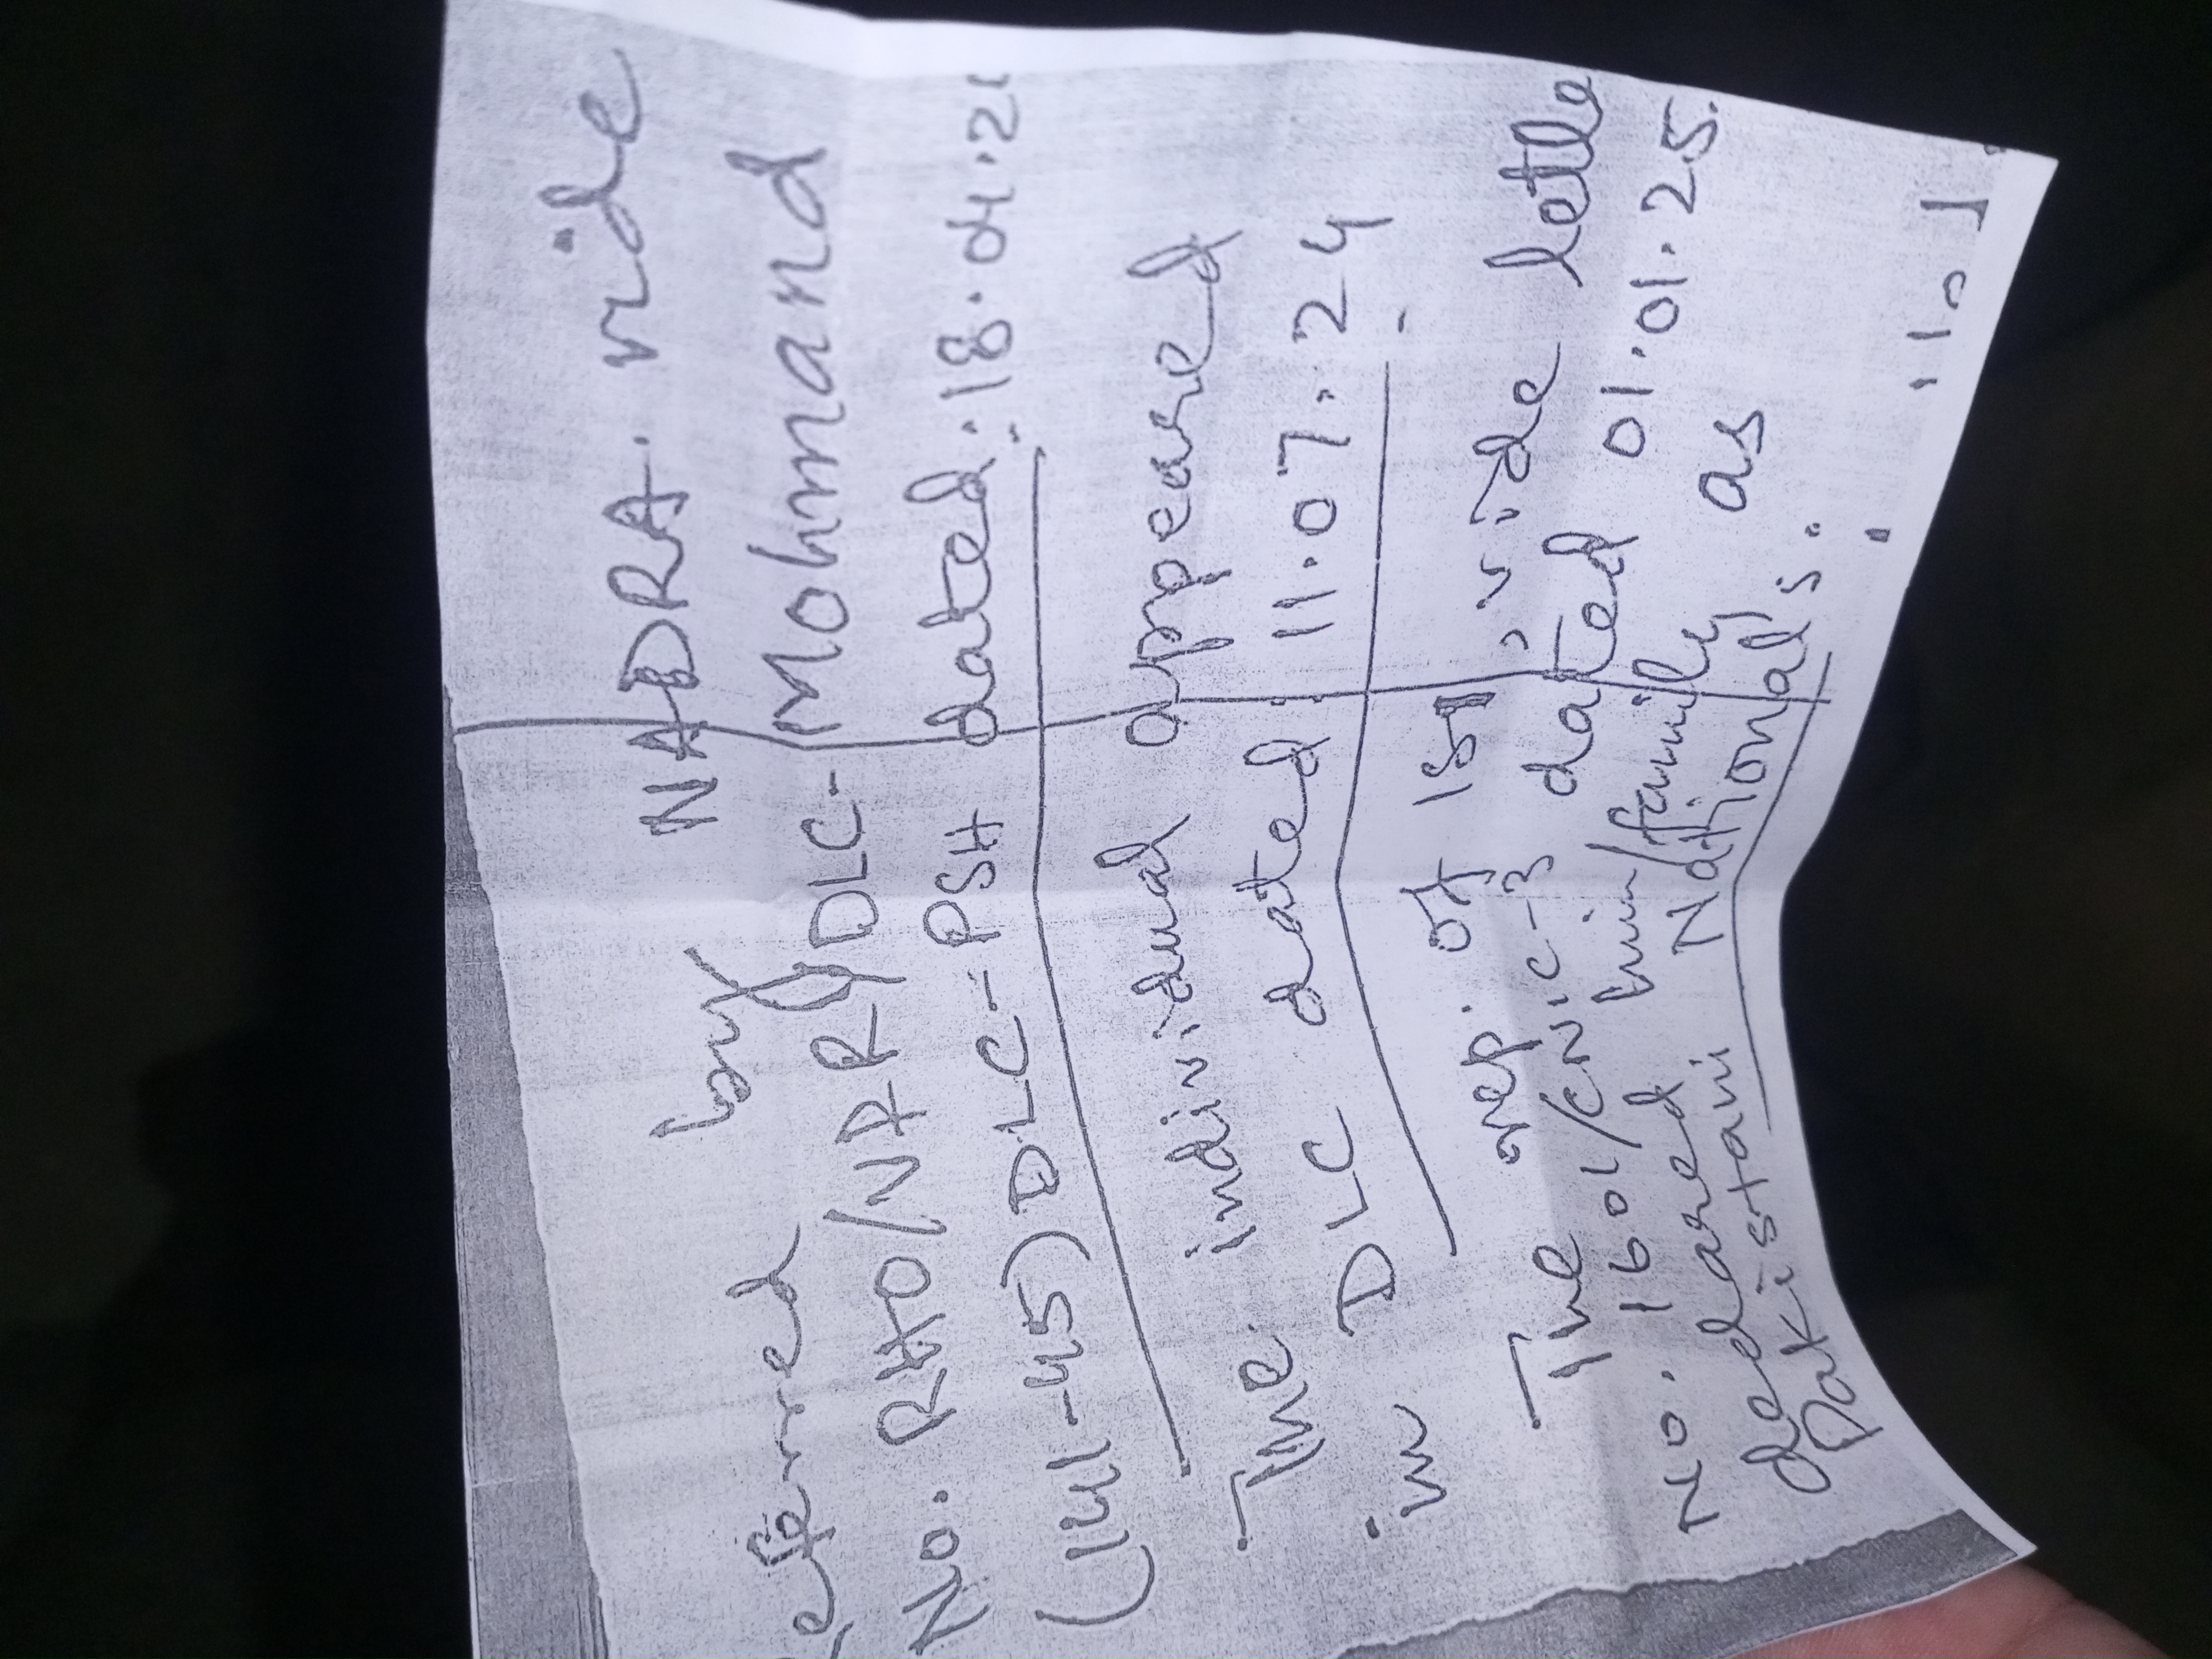 Referred by NADRA vide
No. RHO/VRR/DLC-Mohmand
(141-45) DLC-PSH dated: 18.04.2
The individual appeared
in DLC dated 11.07.24
The rep. of ISI vide lette
No. 1601/CNIC-3 dated 01.01.25.
declared him/family as
Pakistani Nationals.